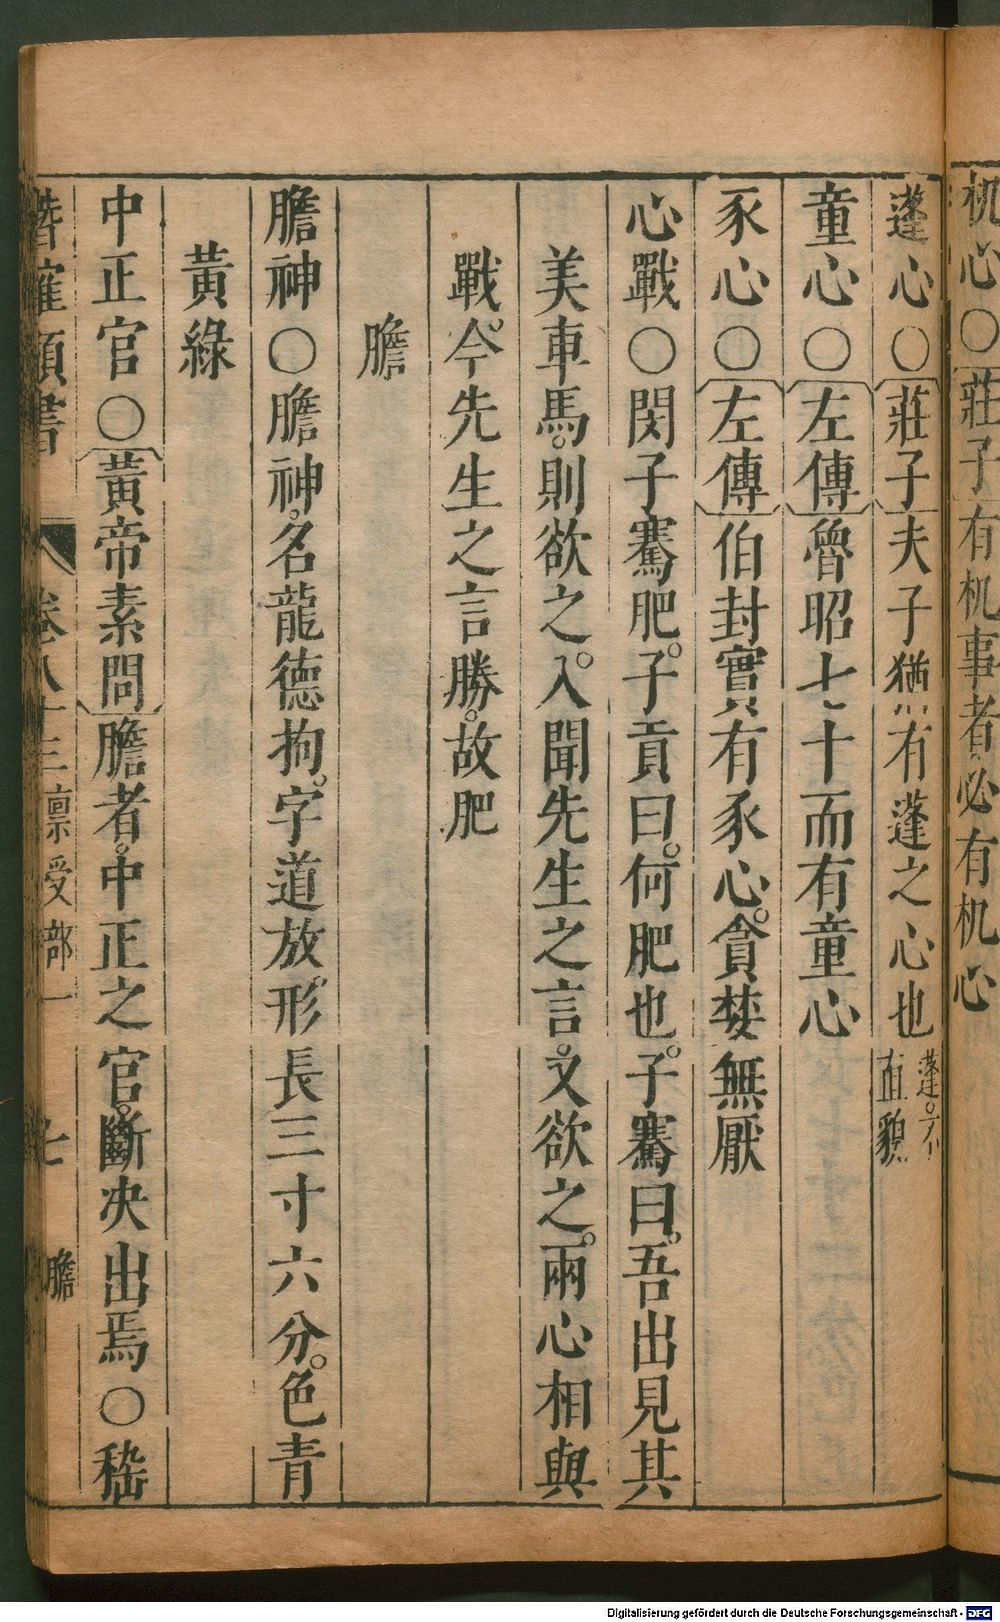 机心○莊子有机事者必有机心
蓬心○莊子夫子猶有蓬之心也蓬不直貌
童心○左傳魯昭七十而有童心
豕心○左傳伯封實有豕心貪婪無厭
心戰○閔子騫肥子貢曰何肥也子騫曰吾出見其
美車馬則欲之入聞先生之言又欲之兩心相與
戰今先生之言勝故肥
膽
膽神○膽神名龍德拘字道放形長三寸六分色青
黃綠
中正官○黃帝素問膽者中正之官斷决出焉○嵇
潛確類書 卷八十三稟受部一 七 膽
Digitalisierung gefördert durch die Deutsche Forschungsgemeinschaft - DFG